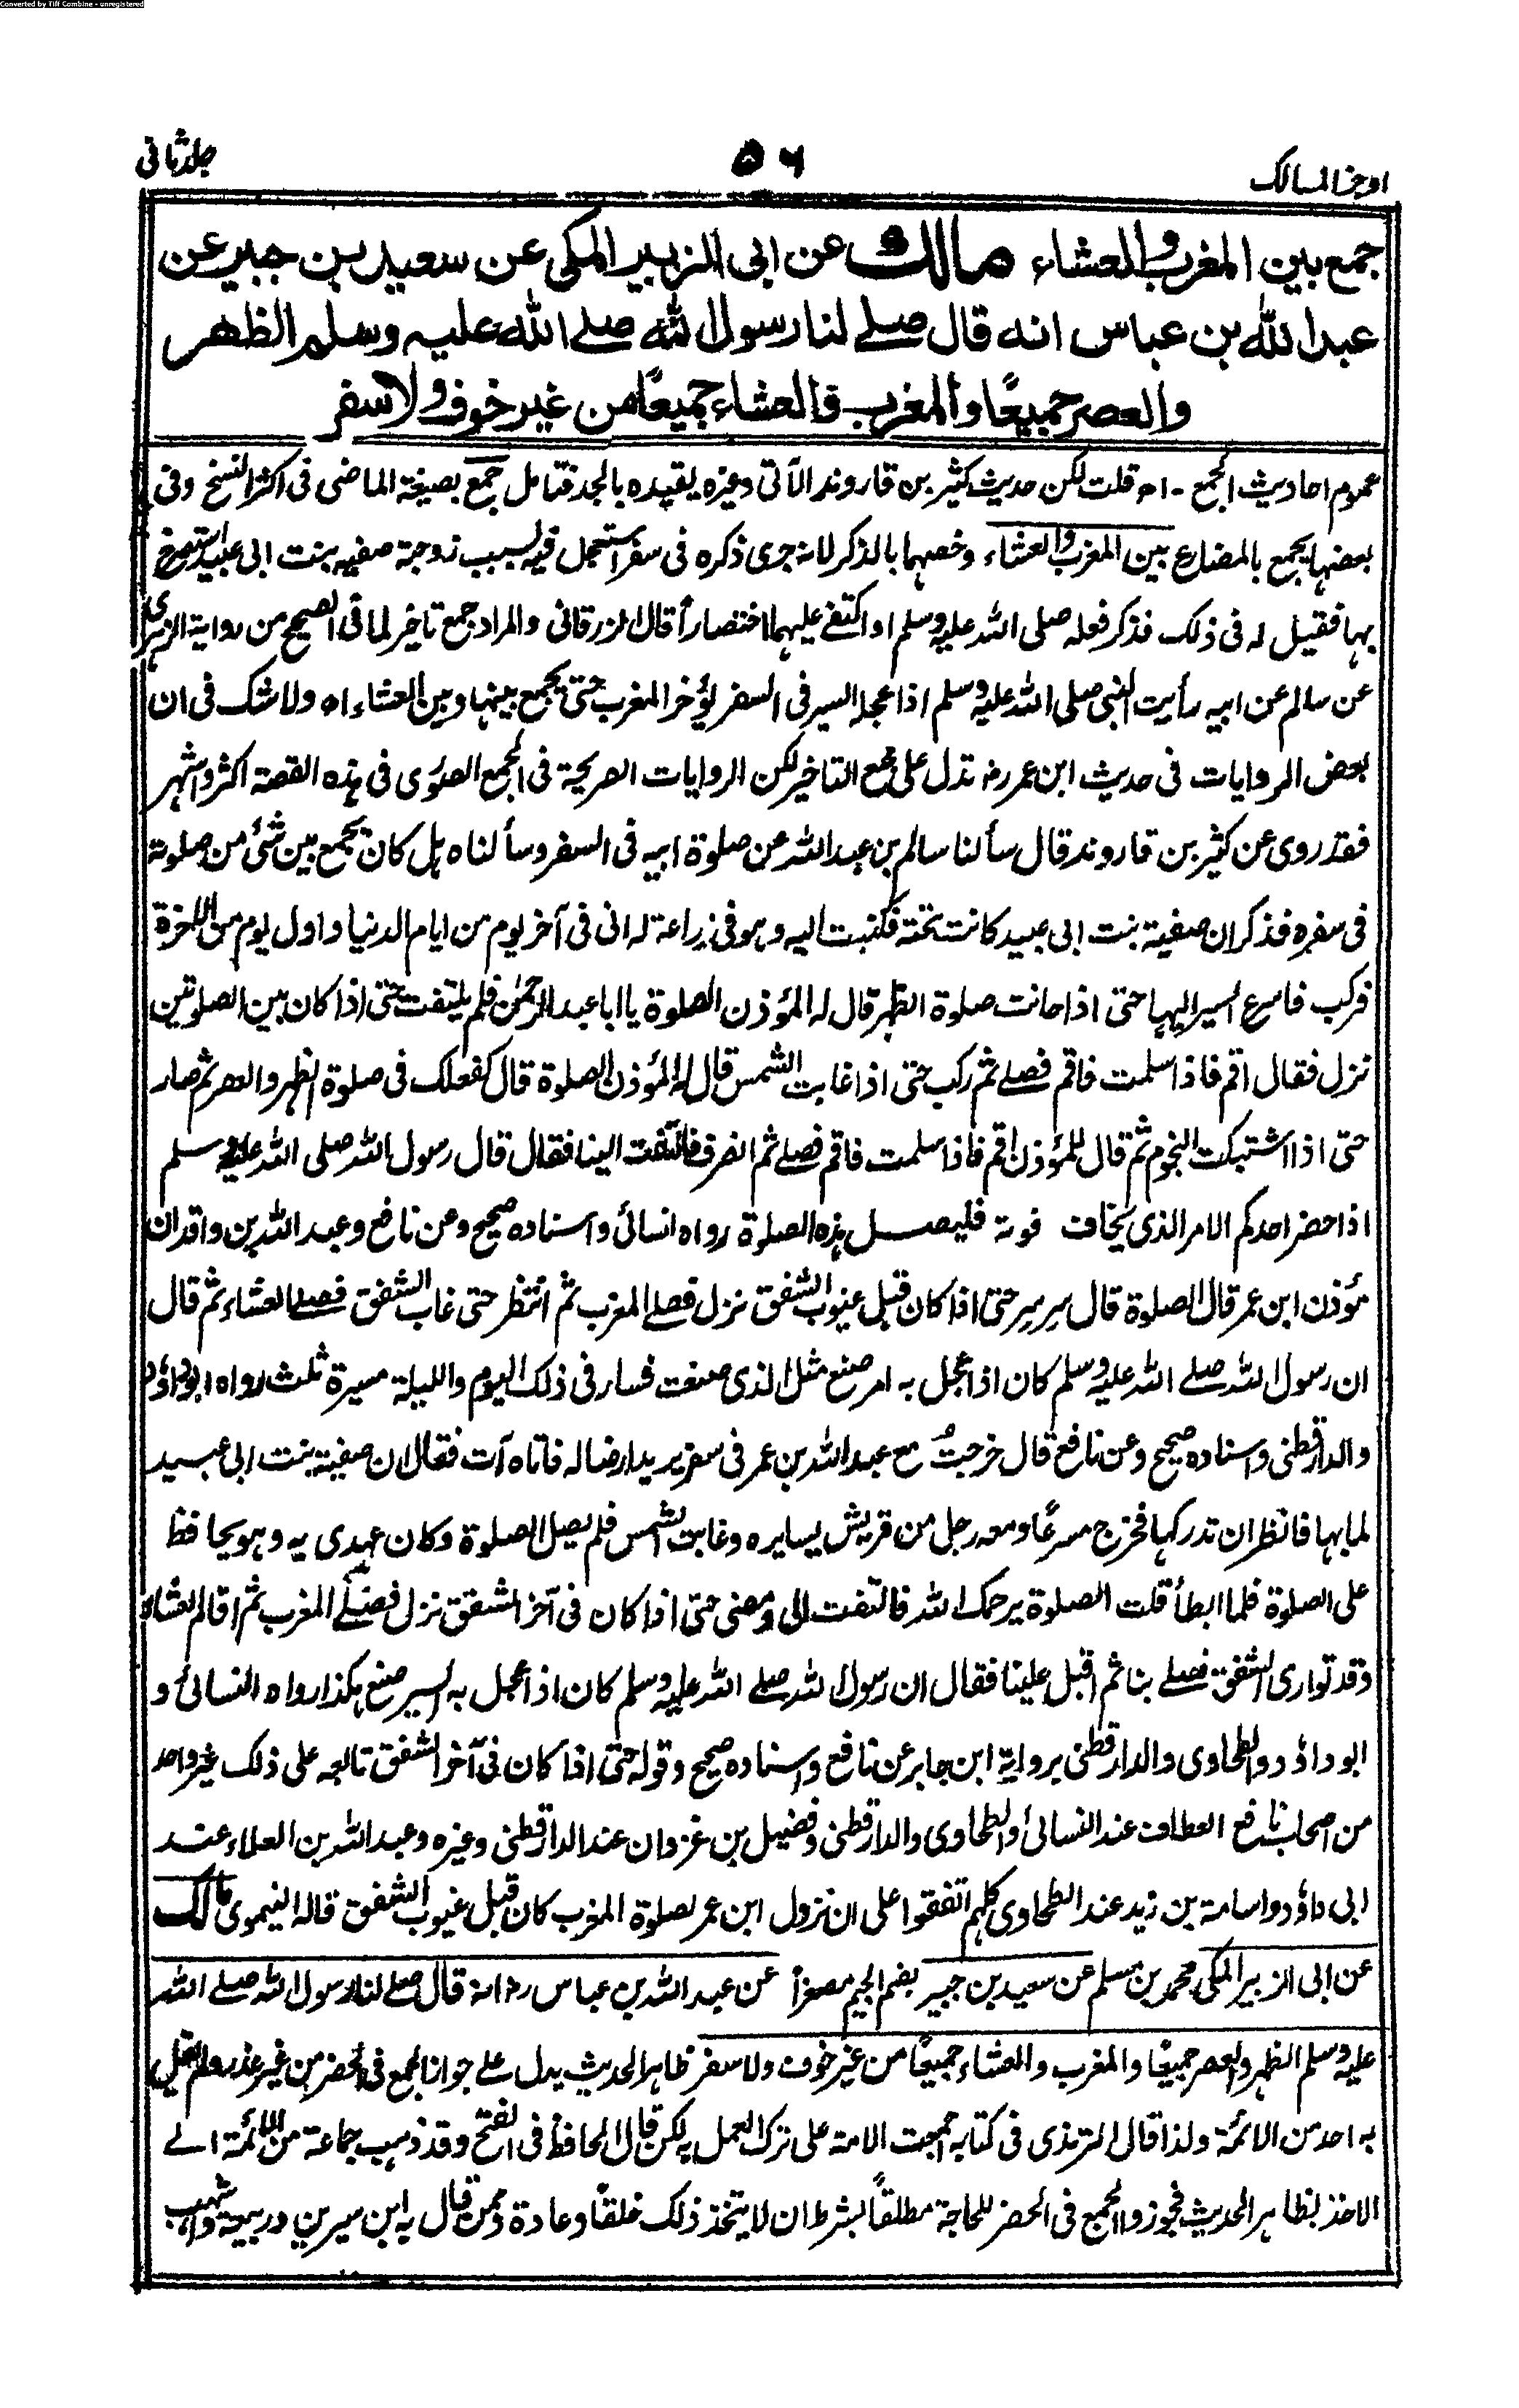 Converted by Tiff Combine - unregistered
اوجز المسالك
۵۶
جلد ثانی
جمع بين المغرب والعشاء مالك عن ابى الزبير المكى عن سعيد بن جبير عن
عبد الله بن عباس انه قال صلے لنا رسول الله صلے الله عليه وسلم الظهر
والعصر جميعًا والمغرب والعشاء جميعًا من غير خوف ولا سفر
عموم احاديث الجمع - اه قلت لكن حديث كثير بن قاروند الآتى وغيره يقيده بالجد فتامل جمع بصيغة الماضى فى اكثر النسخ وفى
بعضها يجمع بالمضارع بين المغرب والعشاء وخصهما بالذكر لانه جرى ذكره فى سفر استعجل فيه بسبب زوجة صفيه بنت ابى عبيد استصرخ
بها فقيل له فى ذلك فذكر فعله صلى الله عليه وسلم او اكتفے عليهما اختصاراً قال الزرقانى والمراد جمع تاخير لما فى الصحيح من رواية الزهرى
عن سالم عن ابيه رأيت النبى صلى الله عليه وسلم اذا عجله السير فى السفر يؤخر المغرب حتى يجمع بينها وبين العشاء اه ولا شك فى ان
بعض الروايات فى حديث ابن عمر رض تدل على جمع التاخير لكن الروايات الصريحة فى الجمع الصوى فى هذه القصة اكثر واشهر
فقد روى عن كثير بن قاروند قال سألنا سالم بن عبد الله عن صلوة ابيه فى السفر وسألناه هل كان يجمع بين شئ من صلوته
فى سفره فذكر ان صفية بنت ابى عبيد كانت تحته فكتبت اليه وهو فى زراعة له انى فى آخر يوم من ايام الدنيا واول يوم من الآخرة
فركب فاسرع السير اليها حتى اذا حانت صلوة الظهر قال له المؤذن الصلوة يا ابا عبد الرحمن فلم يلتفت حتى اذا كان بين الصلوتين
نزل فقال اقم فاذا سلمت فاقم فصلے ثم ركب حتى اذا غابت الشمس قال له المؤذن الصلوة قال كفعلك فى صلوة الظهر والعصر ثم صار
حتى اذا اشتبكت النجوم ثم قال للمؤذن اقم فاذا سلمت فاقم فصلے ثم انصرف فالتفت الينا فقال قال رسول الله صلى الله عليه وسلم
اذا حضر احدكم الامر الذى يخاف فوته فليصل هذه الصلوة رواه النسائى واسناده صحيح وعن نافع وعبد الله بن واقد ان
مؤذن ابن عمر قال الصلوة قال سر سر حتى اذا كان قبل غيوب الشفق نزل فصلے المغرب ثم انتظر حتى غاب الشفق فصلے العشاء ثم قال
ان رسول الله صلے الله عليه وسلم كان اذا عجل به امر صنع مثل الذى صنعت فسار فى ذلك اليوم والليلة مسيرة ثلث رواه ابو داؤد
والدارقطنى واسناده صحيح وعن نافع قال خرجتُ مع عبد الله بن عمر فى سفر يريد ارضا له فاتاه آت فقال ان صفية بنت ابى عبيد
لما بها فانظر ان تدركها فخرج مسرعًا ومعه رجل من قريش يسايره وغابت الشمس فلم يصل الصلوة وكان عهدى به وهو يحافظ
على الصلوة فلما ابطأ قلت الصلوة يرحمك الله فالتفت الى ومضى حتى اذا كان فى آخر الشفق نزل فصلے المغرب ثم اقام العشاء
وقد توارى الشفق فصلے بنا ثم اقبل علينا فقال ان رسول الله صلے الله عليه وسلم كان اذا عجل به السير صنع هكذا رواه النسائى و
ابو داؤد والطحاوى والدارقطنى برواية ابن جابر عن نافع واسناده صحيح وقوله حتى اذا كان فى آخر الشفق تابعه على ذلك غير واحد
من اصحاب نافع العطاف عند النسائى والطحاوى والدارقطنى وفضيل بن غزوان عند الدارقطنى وغيره وعبد الله بن العلاء عند
ابى داؤد واسامة بن زيد عند الطحاوى كلهم اتفقوا على ان نزول ابن عمر لصلوة المغرب كان قبل غيوب الشفق قاله النيموى مالك
عن ابى الزبير المكى محمد بن مسلم عن سعيد بن جبير بضم الجيم مصغراً عن عبد الله بن عباس رض انه قال صلے لنا رسول الله صلے الله
عليه وسلم الظهر والعصر جميعًا والمغرب والعشاء جميعًا من غير خوف ولا سفر ظاهر الحديث يدل علے جواز الجمع فى الحضر من غير عذر ولم يقل
به احد من الائمة ولذا قال الترمذى فى كتابه اجمعت الامة على ترك العمل به لكن قال الحافظ فى الفتح وقد ذهب جماعة من الائمة الے
الاخذ بظاهر الحديث فجوزوا الجمع فى الحضر للحاجة مطلقاً بشرط ان لا يتخذ ذلك خلقاً وعادة وممن قال به ابن سيرين وربيعة واشهب